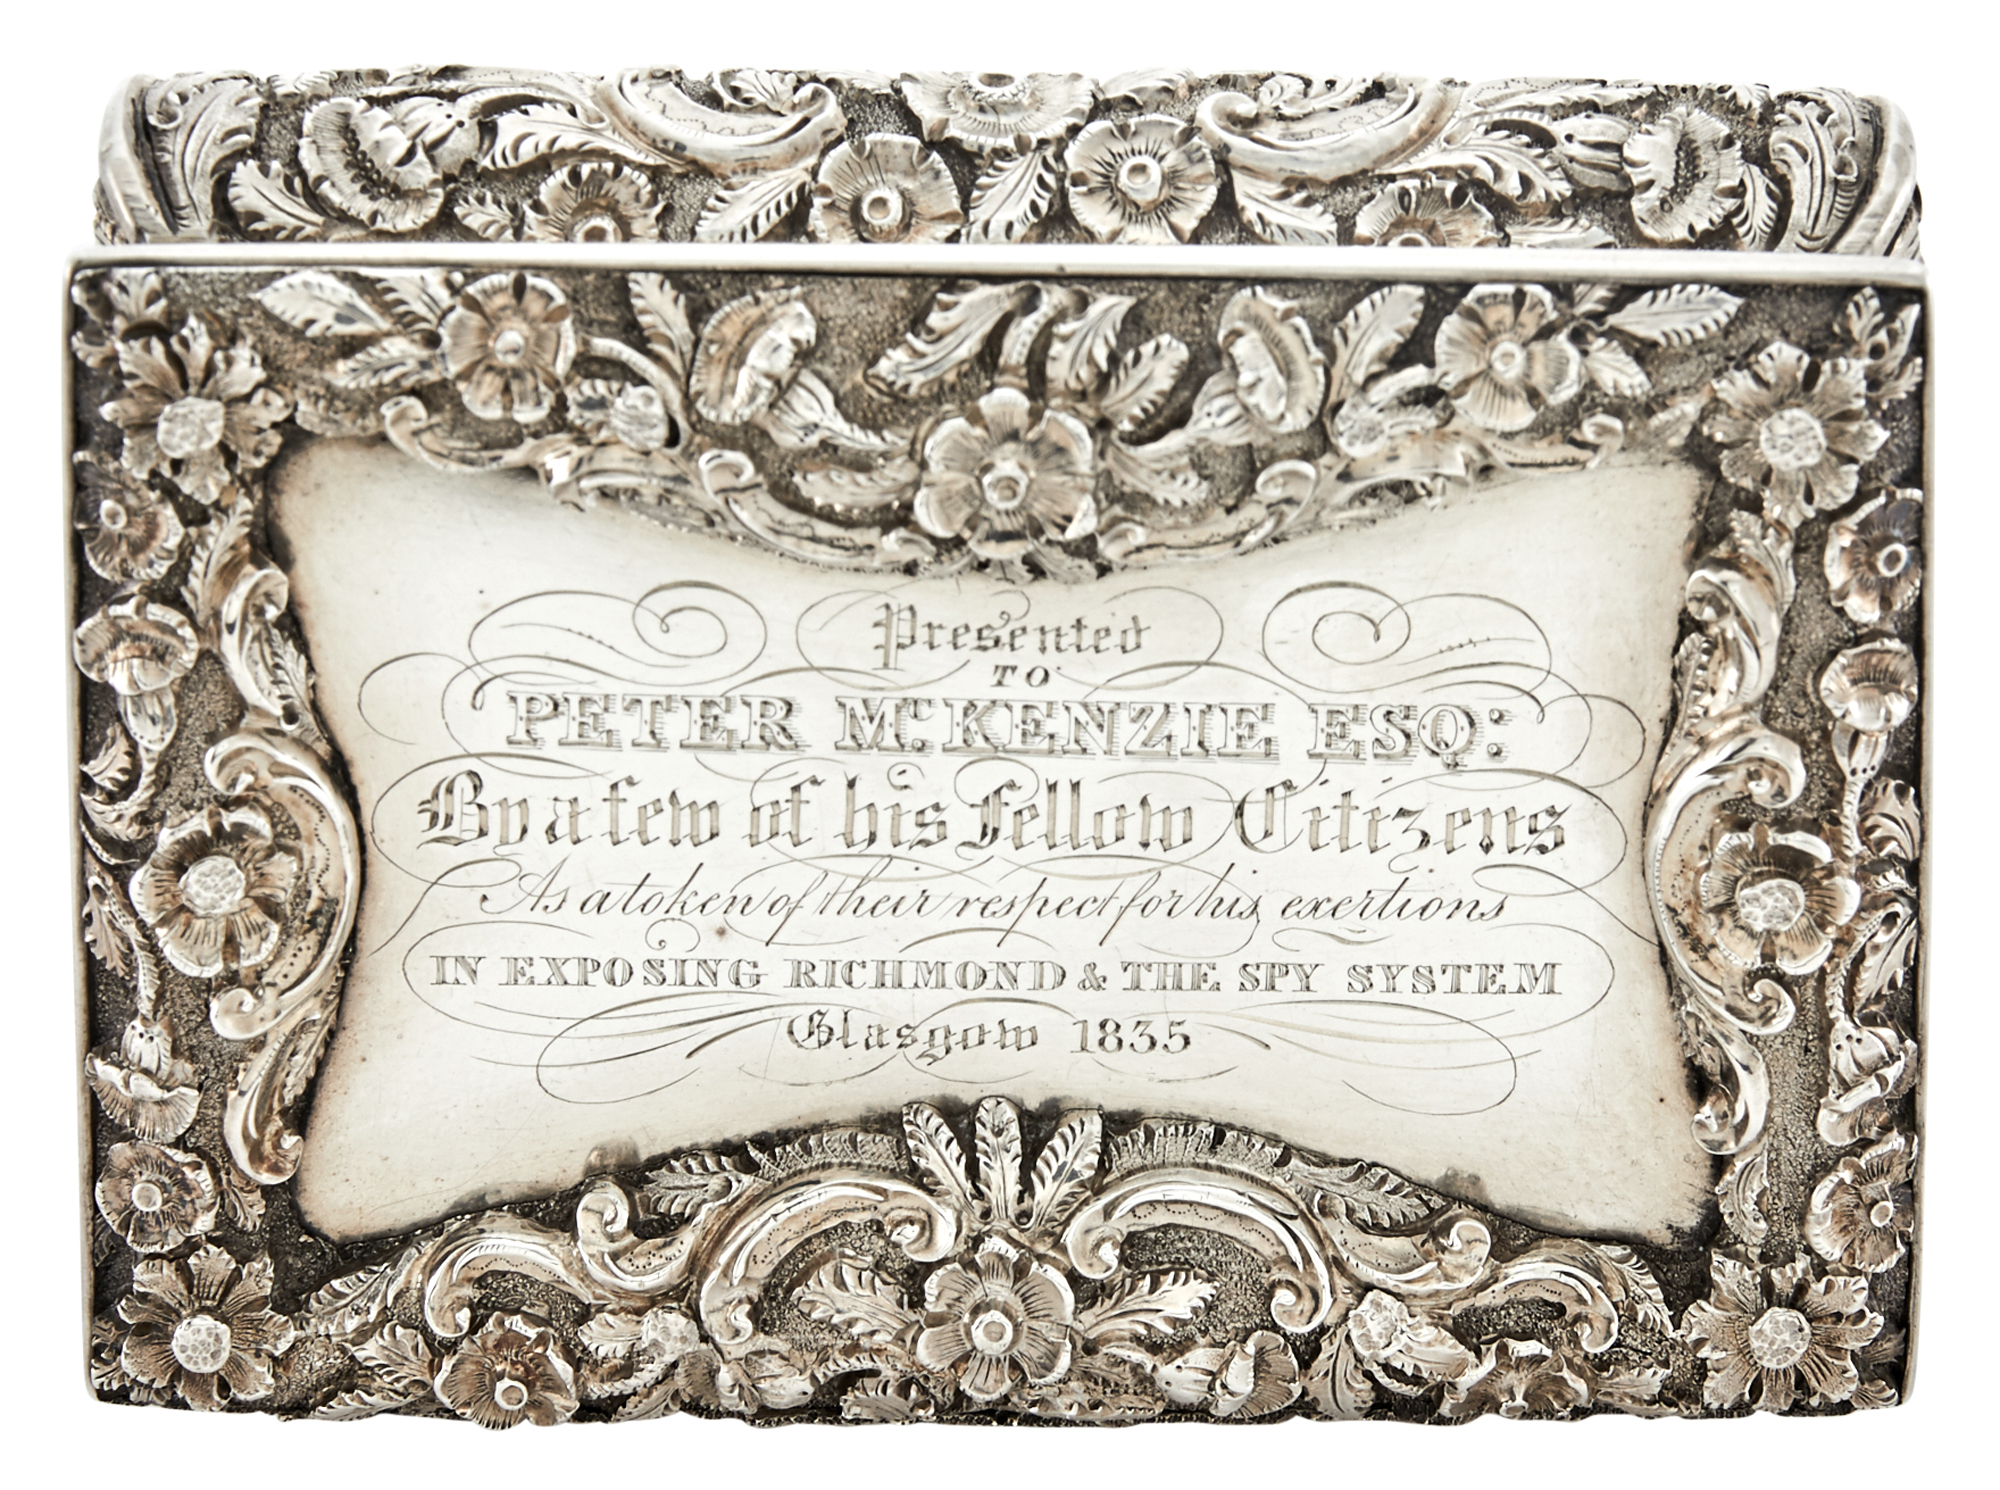 Presented
TO
PETER Mc. KENZIE ESQ:
By a few of his Fellow Citizens
As a token of their respect for his exertions
IN EXPOSING RICHMOND & THE SPY SYSTEM
Glasgow 1835